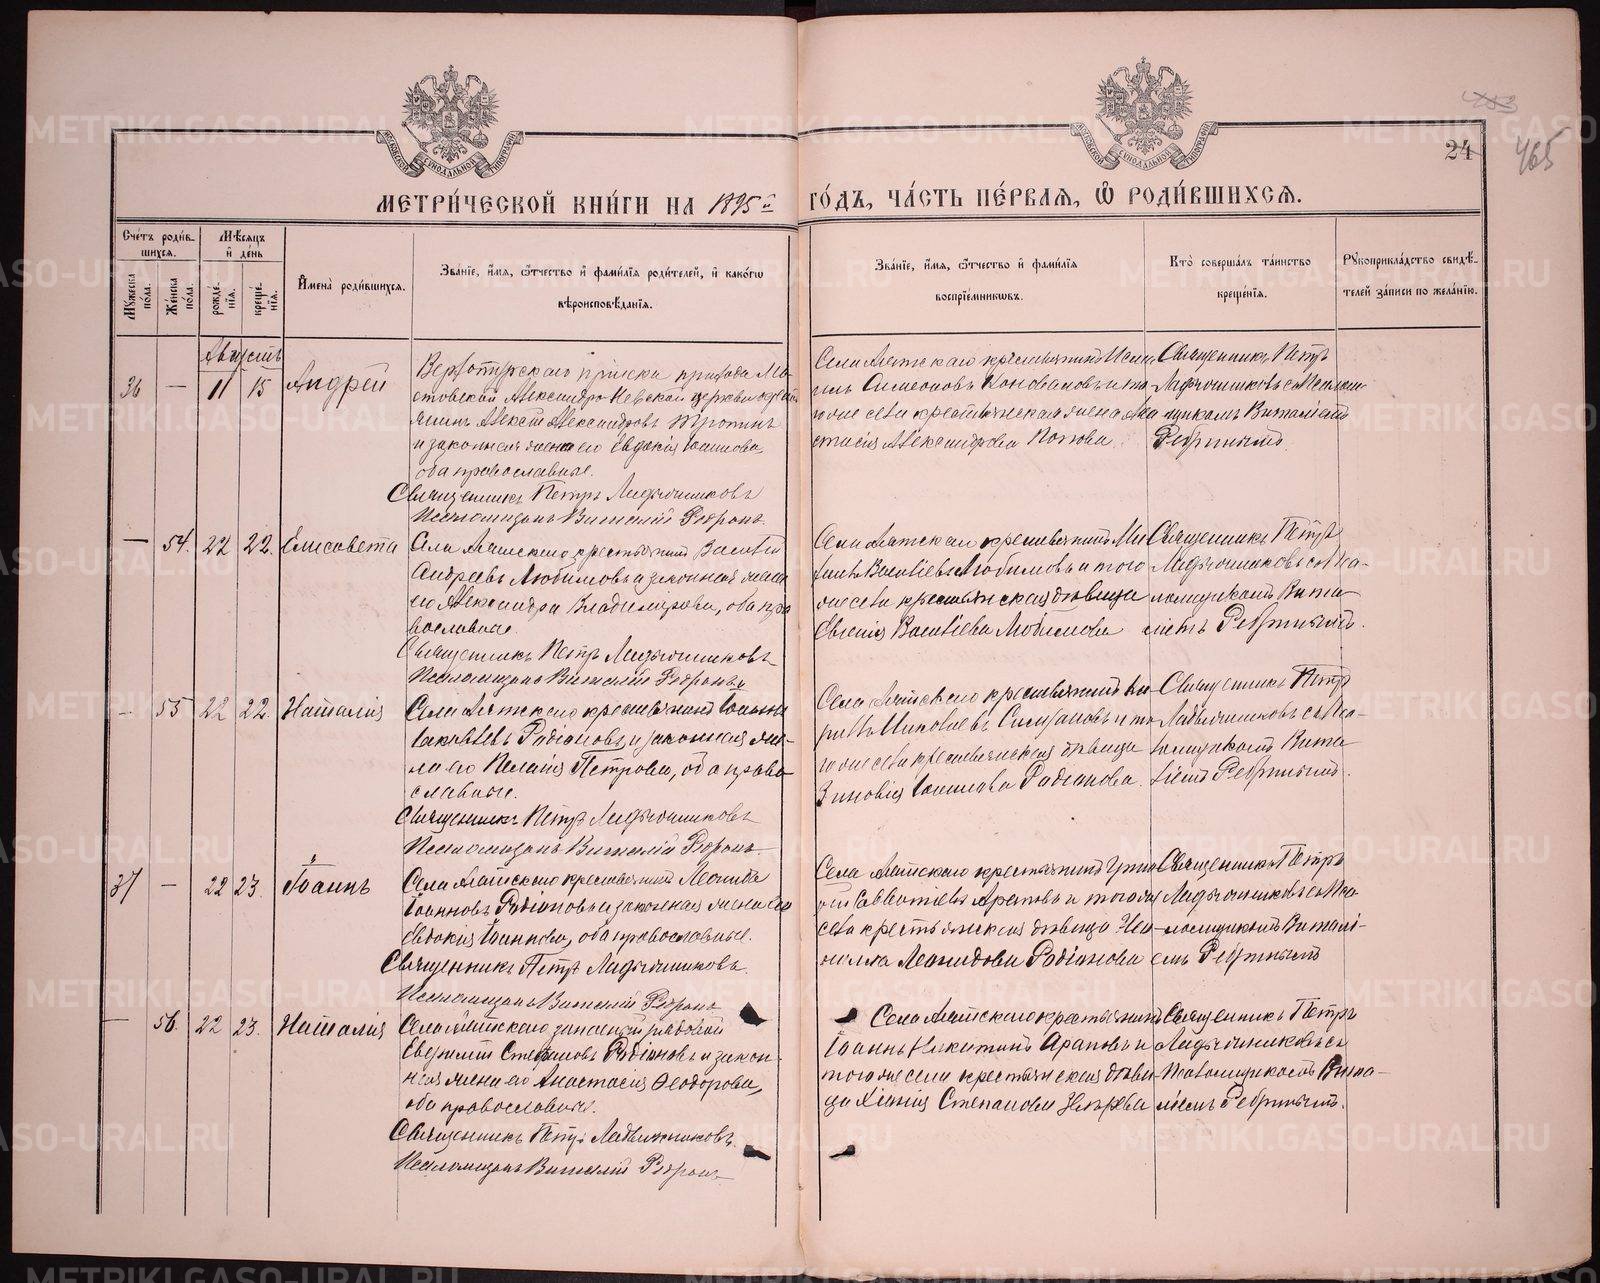 МОСКОВСКОЙ СѴНОДАЛЬНОЙ ТИПОГРАФІИ
МОСКОВСКОЙ СѴНОДАЛЬНОЙ ТИПОГРАФІИ
24
465
МЕТРИ́ЧЕСКОЙ КНИ́ГИ НА 1895й ГО́ДЪ, ЧА́СТЬ ПЕ́РВАЯ, Ѿ РОДИ́ВШИХСЯ.
Сче́тъ роди́в-
шихся.
Му́жеска
по́ла.
Же́нска
по́ла.
Мѣ́сяцъ
и́ де́нь
рожде́-
нїя.
креще́-
нїя.
Имена̀ роди́вшихся.
Зва́нїе, и́мя, ѻ҆́тчество и́ фами́лїя роди́телей, и́ како́гѡ
вѣроисповѣ́данїя.
Зва́нїе, и́мя, ѻ҆́тчество и́ фами́лїя
воспрїе́мниковъ.
Кто̀ соверша́лъ та́инство
креще́нїя.
Рꙋкоприкла́дство свидѣ́-
телей за́писи по жела́нїю.
Августъ
36 — 11 15 Андрей
Верхотурскаго приписка прихода
стовской Александро-Невской церкви
Алексій Александровъ
и законная жена его Евдокія Іоаннова,
оба православные.
Священникъ Петръ Ладыжниковъ
Псаломщикъ Виталій Ребринъ
Села Аятскаго крестьянинъ
Симеоновъ Коноваловъ и то-
гоже села крестьянская жена Ана-
стасія Александрова Попова.
Священникъ Петръ
Ладыжниковъ съ псалом-
щикомъ Виталіемъ
Ребринымъ.
— 54. 22 22. Елисовета
Села Аятскаго крестьянинъ Василій
Андреевъ Любимовъ и законная жена
его Александра Владимірова, оба пра-
вославные.
Священникъ Петръ Ладыжниковъ
Псаломщикъ Виталій Ребринъ
Села Аятскаго крестьянинъ Ми-
хаилъ Василіевъ Любимовъ и того
же села крестьянская дѣвица
Евгенія Василіева Любимова
Священникъ Петръ
Ладыжниковъ съ пса-
ломщикомъ Вита-
ліемъ Ребринымъ.
— 55 22 22. Наталія
Села Аятскаго крестьянинъ Іоаннъ
Іаковлевъ Родіоновъ и законная же-
на его Пелагія Петрова, оба право-
славные.
Священникъ Петръ Ладыжниковъ
Псаломщикъ Виталій Ребринъ
Села Аятскаго крестьянинъ Ки-
риллъ Николаевъ и то-
гоже села крестьянская дѣвица
Зиновія Родіонова.
Священникъ Петръ
Ладыжниковъ съ пса-
ломщикомъ Вита-
ліемъ Ребринымъ.
37 — 22 23. Іоаннъ
Села Аятскаго крестьянинъ Леонидъ
Іоанновъ Родіоновъ и законная жена его
Евдокія Іоаннова, оба православные.
Священникъ Петръ Ладыжниковъ.
Псаломщикъ Виталій Ребринъ
Села Аятскаго крестьянинъ
Савватіевъ Араповъ и тогоже
села крестьянская дѣвица Нео-
нилла Леонидова Родіонова
Священникъ Петръ
Ладыжниковъ съ пса-
ломщикомъ Виталі-
емъ Ребринымъ
— 56. 22 23. Наталія
Села Аятскаго запасный рядовой
Евгеній Стефановъ Родіоновъ и закон-
ная жена его Анастасія Ѳеодорова,
оба православные.
Священникъ Петръ Ладыжниковъ.
Псаломщикъ Виталій Ребринъ
Села Аятскаго крестьянинъ
Іоаннъ Никитинъ Араповъ и
того же села крестьянская дѣви-
ца Хіонія Степанова
Священникъ Петръ
Ладыжниковъ съ
псаломщикомъ Вита-
ліемъ Ребринымъ.
METRIKI.GASO-URAL.RU